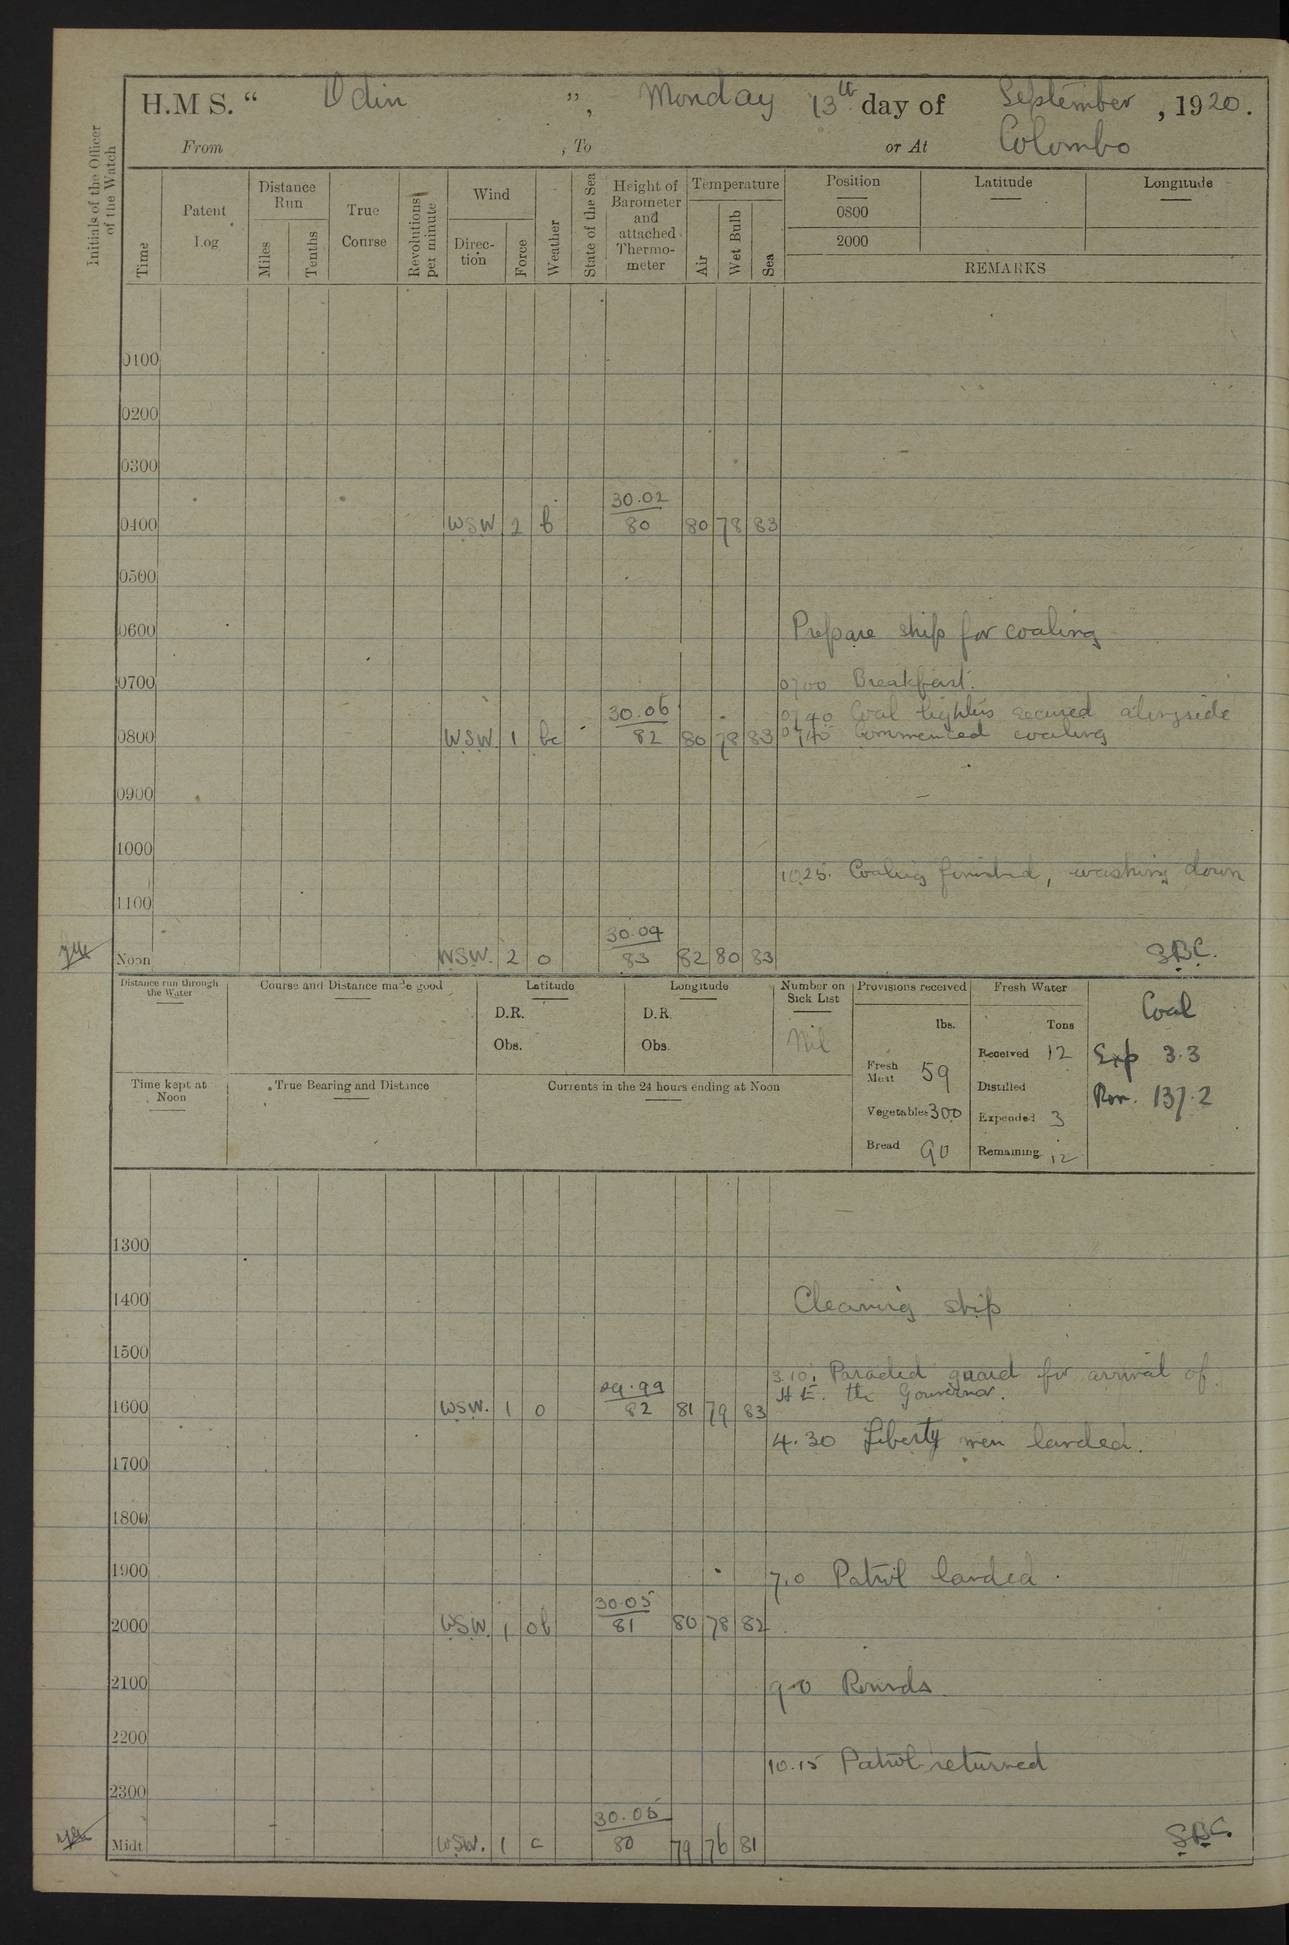 H.M S. " Odin ", Monday 13th day of September, 1920.
From , To or At Colombo
Initials of the Officer of the Watch
Time
Patent Log
Distance Run
Miles
Tenths
True Course
Revolutions per minute
Wind
Direc-tion
Force
Weather
State of the Sea
Height of Barometer and attached Thermo-meter
Temperature
Air
Wet Bulb
Sea
Position Latitude Longitude
0800
2000
REMARKS
0100
0200
0300
30.02
0400 WSW 2 b 80 80 78 83
0500
0600 Prepare ship for coaling
0700 0700 Breakfast.
30.06 0740 Coal lighters secured alongside
0800 WSW 1 bc 82 80 78 83 0740 Commenced coaling
0900
1000
1025. Coaling finished, washing down
1100
30.09
Noon WSW. 2 0 83 82 80 83 SBC.
Distance run through the Water
Course and Distance made good
Latitude
D.R.
Obs.
Longitude
D.R.
Obs.
Number on Sick List
Nil
Provisions received
lbs.
Fresh Meat 59
Vegetables 300
Bread 90
Fresh Water
Tons
Received 12
Distilled
Expended 3
Remaining 12
Coal
Exp 3.3
Rem. 137.2
Time kept at Noon
True Bearing and Distance
Currents in the 24 hours ending at Noon
1300
1400 Cleaning ship
1500
3.10. Paraded guard for arrival of
29.99 H.E. the Gouvernor.
1600 WSW. 1 0 82 81 79 83
4.30 Liberty men landed.
1700
1800
1900 7.0 Patrol landed.
30.05
2000 WSW. 1 ob 81 80 78 82
2100 9.0 Rounds
2200
10.15 Patrol returned
2300
30.05
Midt WSW. 1 c 80 79 76 81 SBC.